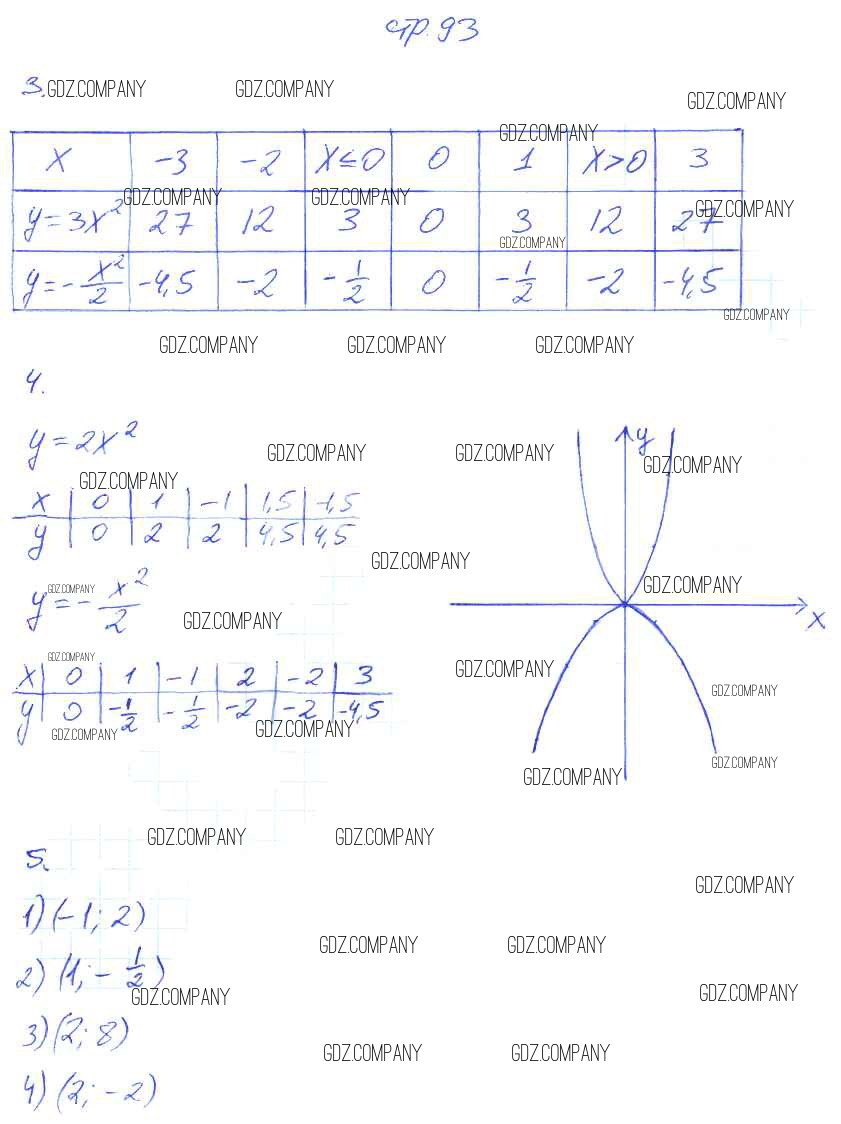 стр. 93
3. GDZ.COMPANY GDZ.COMPANY
GDZ.COMPANY
GDZ.COMPANY
x -3 -2 x≤0 0 1 x>0 3
GDZ.COMPANY GDZ.COMPANY GDZ.COMPANY
y=3x² 27 12 3 0 3 12 27
GDZ.COMPANY
y=-x²/2 -4,5 -2 -1/2 0 -1/2 -2 -4,5
GDZ.COMPANY
GDZ.COMPANY GDZ.COMPANY GDZ.COMPANY
4.
y=2x² y
GDZ.COMPANY GDZ.COMPANY GDZ.COMPANY
GDZ.COMPANY
x 0 1 -1 1,5 -1,5
y 0 2 2 4,5 4,5
GDZ.COMPANY
GDZ.COMPANY GDZ.COMPANY
y=-x²/2
GDZ.COMPANY x
GDZ.COMPANY GDZ.COMPANY
x 0 1 -1 2 -2 3
GDZ.COMPANY
y 0 -1/2 -1/2 -2 -2 -4,5
GDZ.COMPANY GDZ.COMPANY
GDZ.COMPANY
GDZ.COMPANY
GDZ.COMPANY GDZ.COMPANY
5.
GDZ.COMPANY
1) (-1; 2)
GDZ.COMPANY GDZ.COMPANY
2) (1; -1/2)
GDZ.COMPANY GDZ.COMPANY
3) (2; 8)
GDZ.COMPANY GDZ.COMPANY
4) (2; -2)